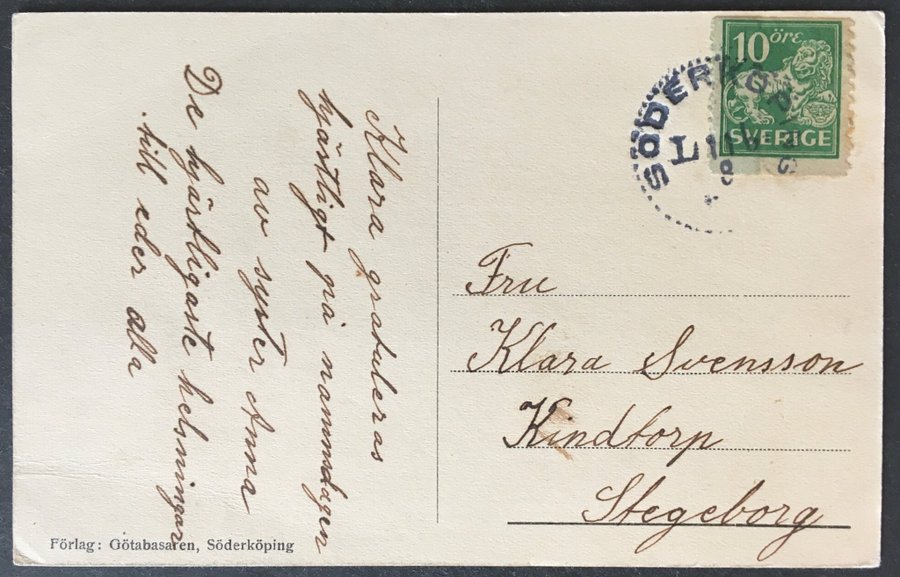 Klara gratuleras
hjärtligt på namnsdagen
av syster Anna
De hjärtligaste helsningar
till eder alla
10 öre
SVERIGE
SÖDERKÖPING
Fru
Klara Svensson
Kindtorp
Stegeborg
Förlag: Götabasaren, Söderköping